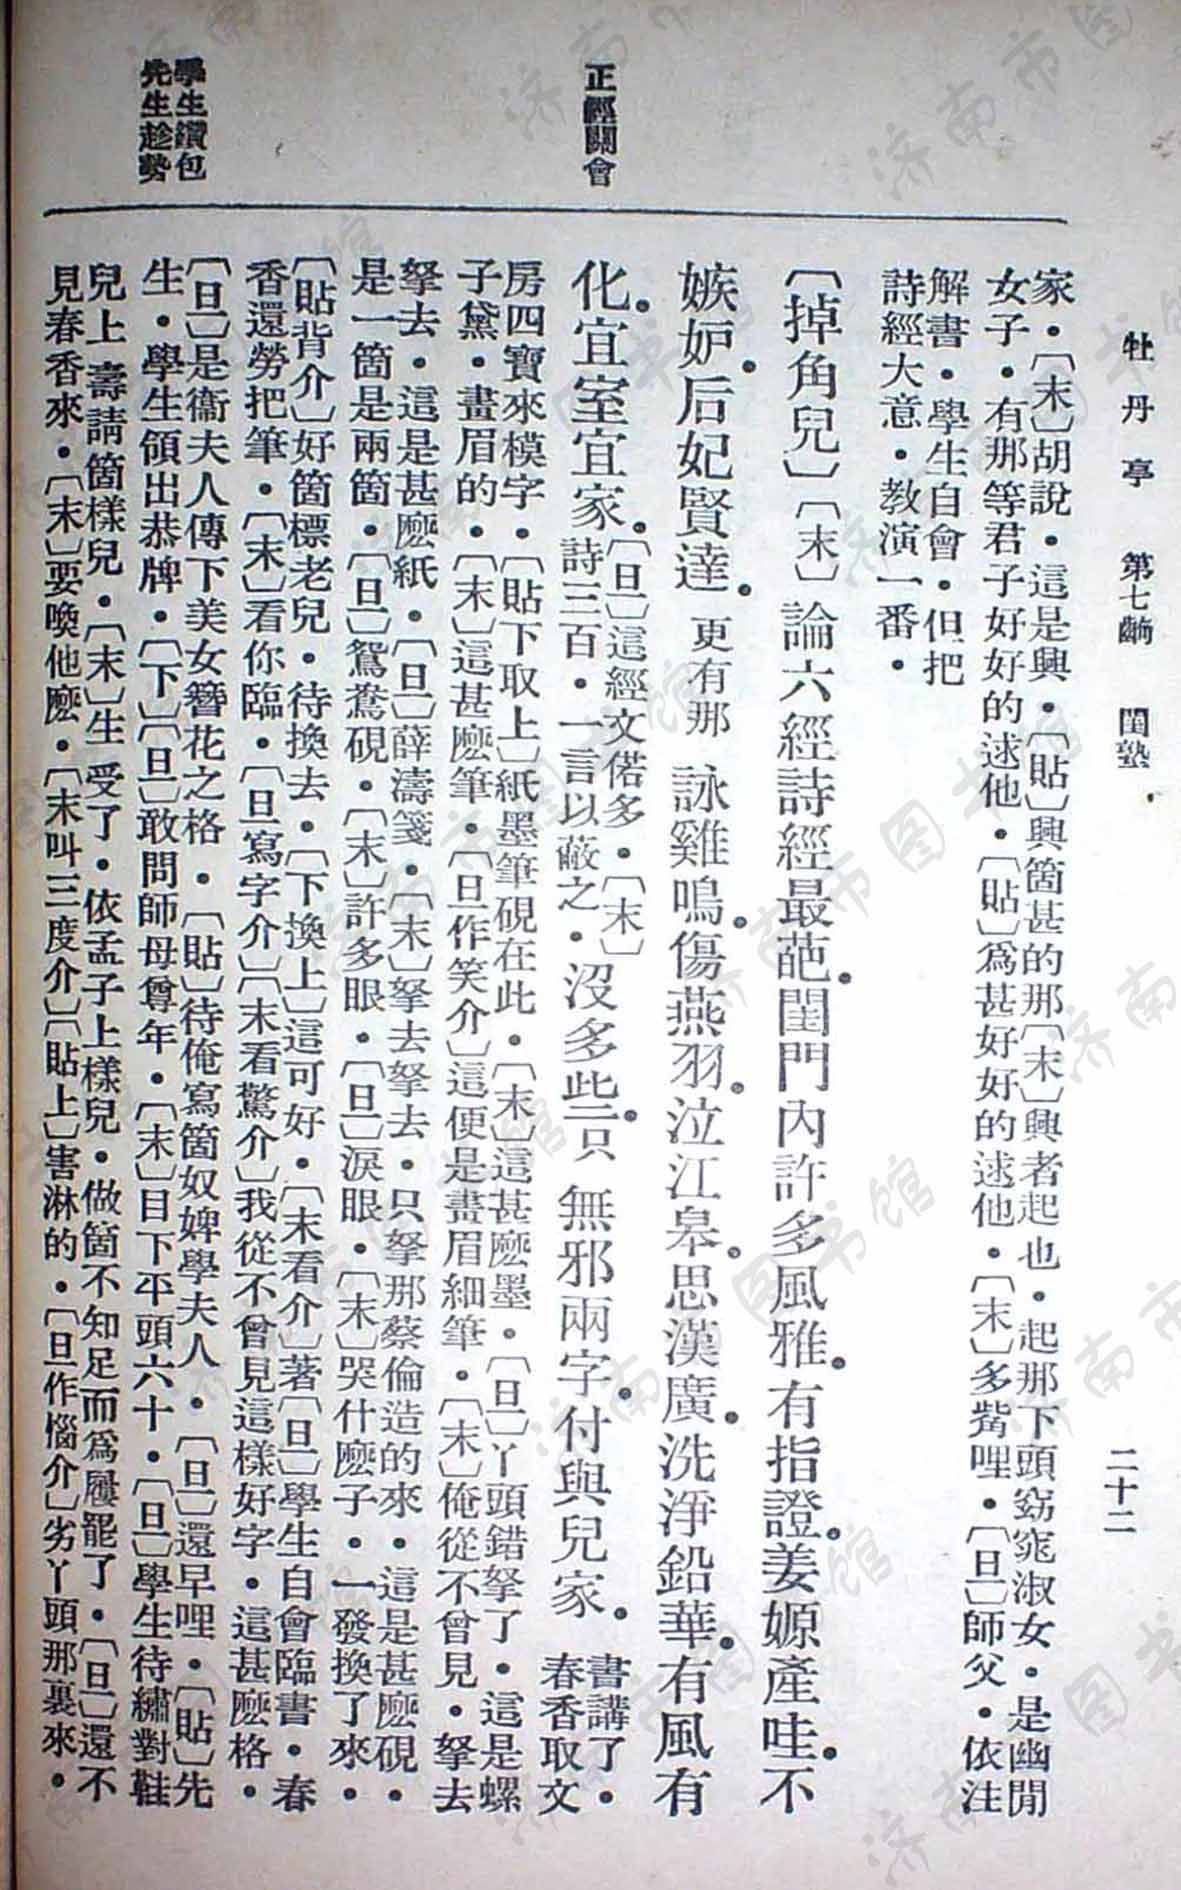 牡丹亭　第七齣　閨塾・　二十二
正經關會
學生鑽包
先生趁勢
家・〔末〕胡說・這是興・〔貼〕興箇甚的那〔末〕興者起也・起那下頭窈窕淑女・是幽閒
女子・有那等君子好好的逑他・〔貼〕爲甚好好的逑他・〔末〕多嘴哩・〔旦〕師父・依注
解書・學生自會・但把
詩經大意・教演一番・
〔掉角兒〕〔末〕論六經詩經最葩。閨門內許多風雅。有指證。姜嫄產哇。不
嫉妒。后妃賢達。更有那　詠雞鳴。傷燕羽。泣江皋。思漢廣。洗淨鉛華。有風有
化。宜室宜家。〔旦〕這經文偌多・〔末〕
詩三百・一言以蔽之・沒多些。只　無邪兩字。付與兒家。書講了・
春香取文
房四寶來模字・〔貼下取上〕紙墨筆硯在此・〔末〕這甚麽墨・〔旦〕丫頭錯拏了・這是螺
子黛・畫眉的・〔末〕這甚麽筆・〔旦作笑介〕這便是畫眉細筆・〔末〕俺從不曾見・拏去
拏去・這是甚麽紙・〔旦〕薛濤箋・〔末〕拏去拏去・只拏那蔡倫造的來・這是甚麽硯・
是一箇是兩箇・〔旦〕鴛鴦硯・〔末〕許多眼・〔旦〕淚眼・〔末〕哭什麽子・一發換了來・
〔貼背介〕好箇標老兒・待換去・〔下換上〕這可好・〔末看介〕著〔旦〕學生自會臨書・春
香還勞把筆・〔末〕看你臨・〔旦寫字介〕〔末看驚介〕我從不曾見這樣好字・這甚麽格・
〔旦〕是衞夫人傳下美女簪花之格・〔貼〕待俺寫箇奴婢學夫人・〔旦〕還早哩・〔貼〕先
生・學生領出恭牌・〔下〕〔旦〕敢問師母尊年・〔末〕目下平頭六十・〔旦〕學生待繡對鞋
兒上壽請箇樣兒・〔末〕生受了・依孟子上樣兒・做箇不知足而爲屨罷了・〔旦〕還不
見春香來・〔末〕要喚他麽・〔末叫三度介〕〔貼上〕害淋的・〔旦作惱介〕劣丫頭那裏來・